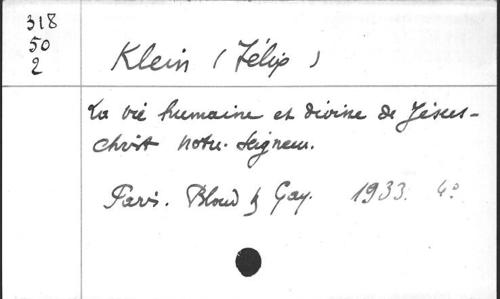 318
50
2
Klein (Félix)
La vie humaine et divine de Jésus-
christ notre-Seigneur.
Paris. Bloud & Gay. 1933. 4°